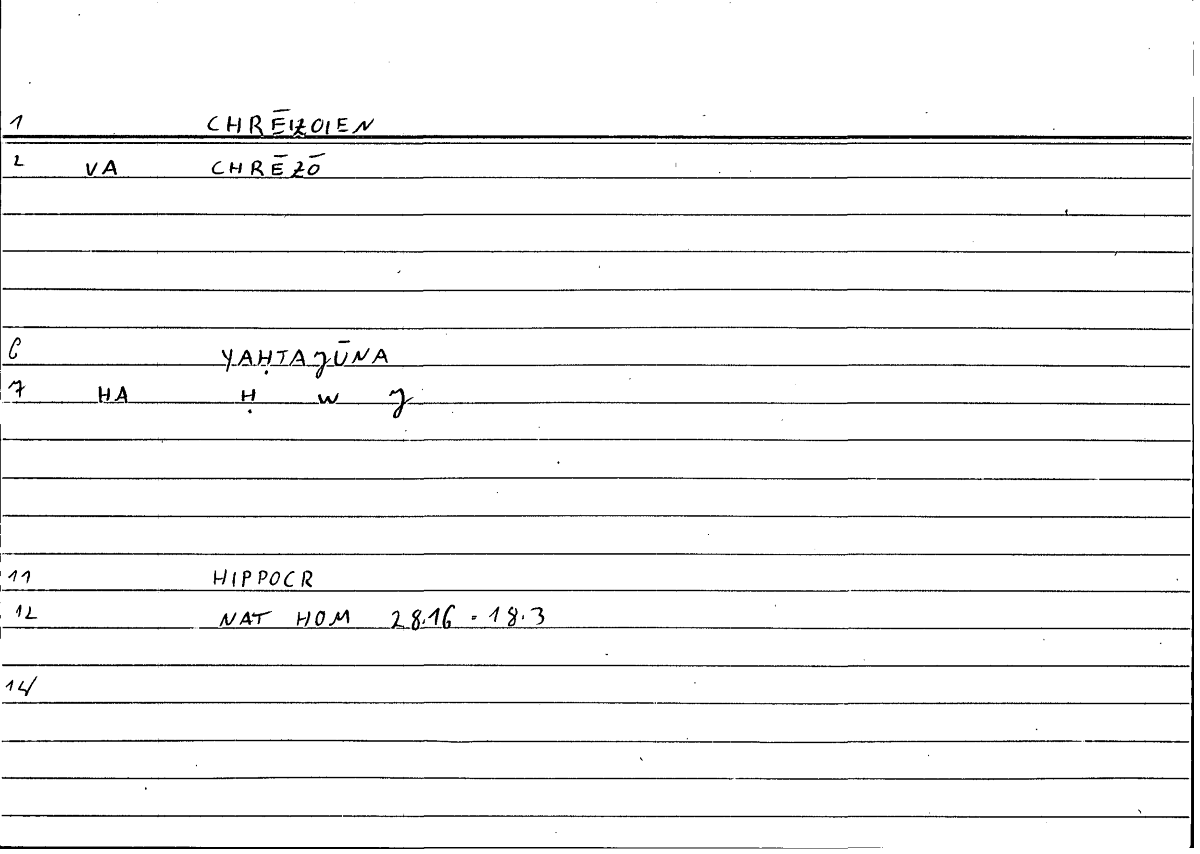 1 CHRĒIZOIEN
2 VA CHRĒZŌ
6 YAḤTAJŪNA
7 HA Ḥ W J
11 HIPPOCR
12 NAT HOM 28.16 - 18.3
14